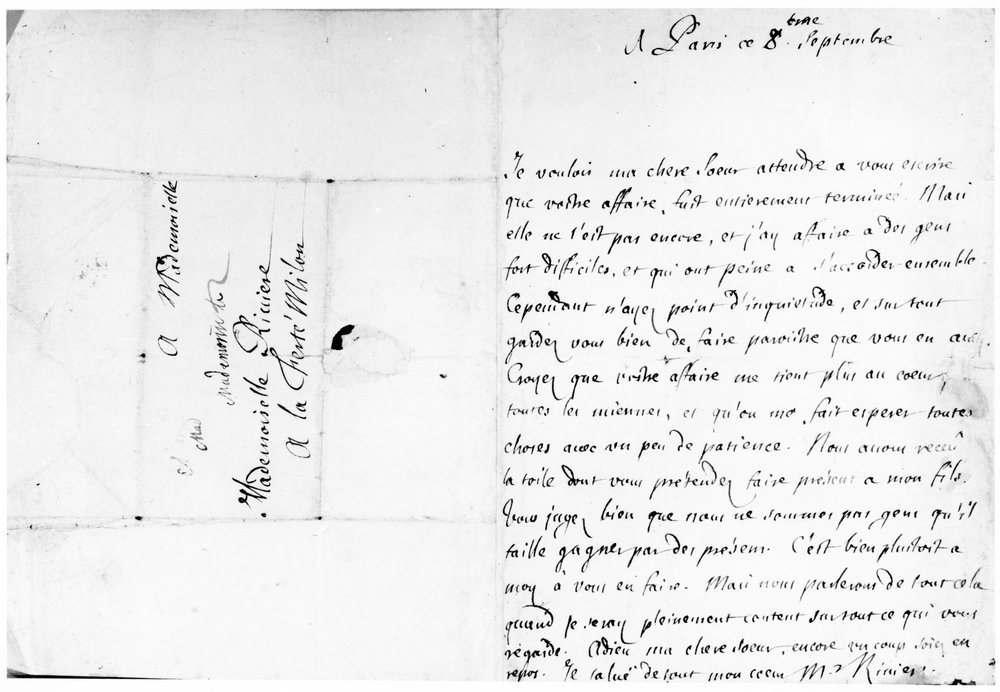 A Mademoiselle
Mademoiselle Riviere
A la Ferté Milon
A Paris ce 8.eme Septembre
Je voulois ma chere Soeur attendre a vous escrire
que vostre affaire, fust entierement terminée. Mais
elle ne l'est pas encore, et j'ay affaire a des gens
fort difficiles, et qui ont peine a s'accorder ensemble.
Cependant n'ayez point d'inquietude, et sur tout
gardez vous bien de faire paroistre que vous en ayez.
Croyez que vostre affaire me tient plus au coeur,
toutes les miennes, et qu'on me fait esperer toutes
choses avec un peu de patience. Nous avons receû
la toile dont vous prétendez faire présent a mon fils.
Vous jugez bien que nous ne sommes pas gens qu'il
faille gagner par des présens. C'est bien plustost a
moy à vous en faire. Mais nous parlerons de tout cela
quand je seray pleinement content sur tout ce qui vous
régarde. Adieu ma chere soeur, encore un coup soiez en
repos. Je saluë de tout mon coeur Mr Riviere.